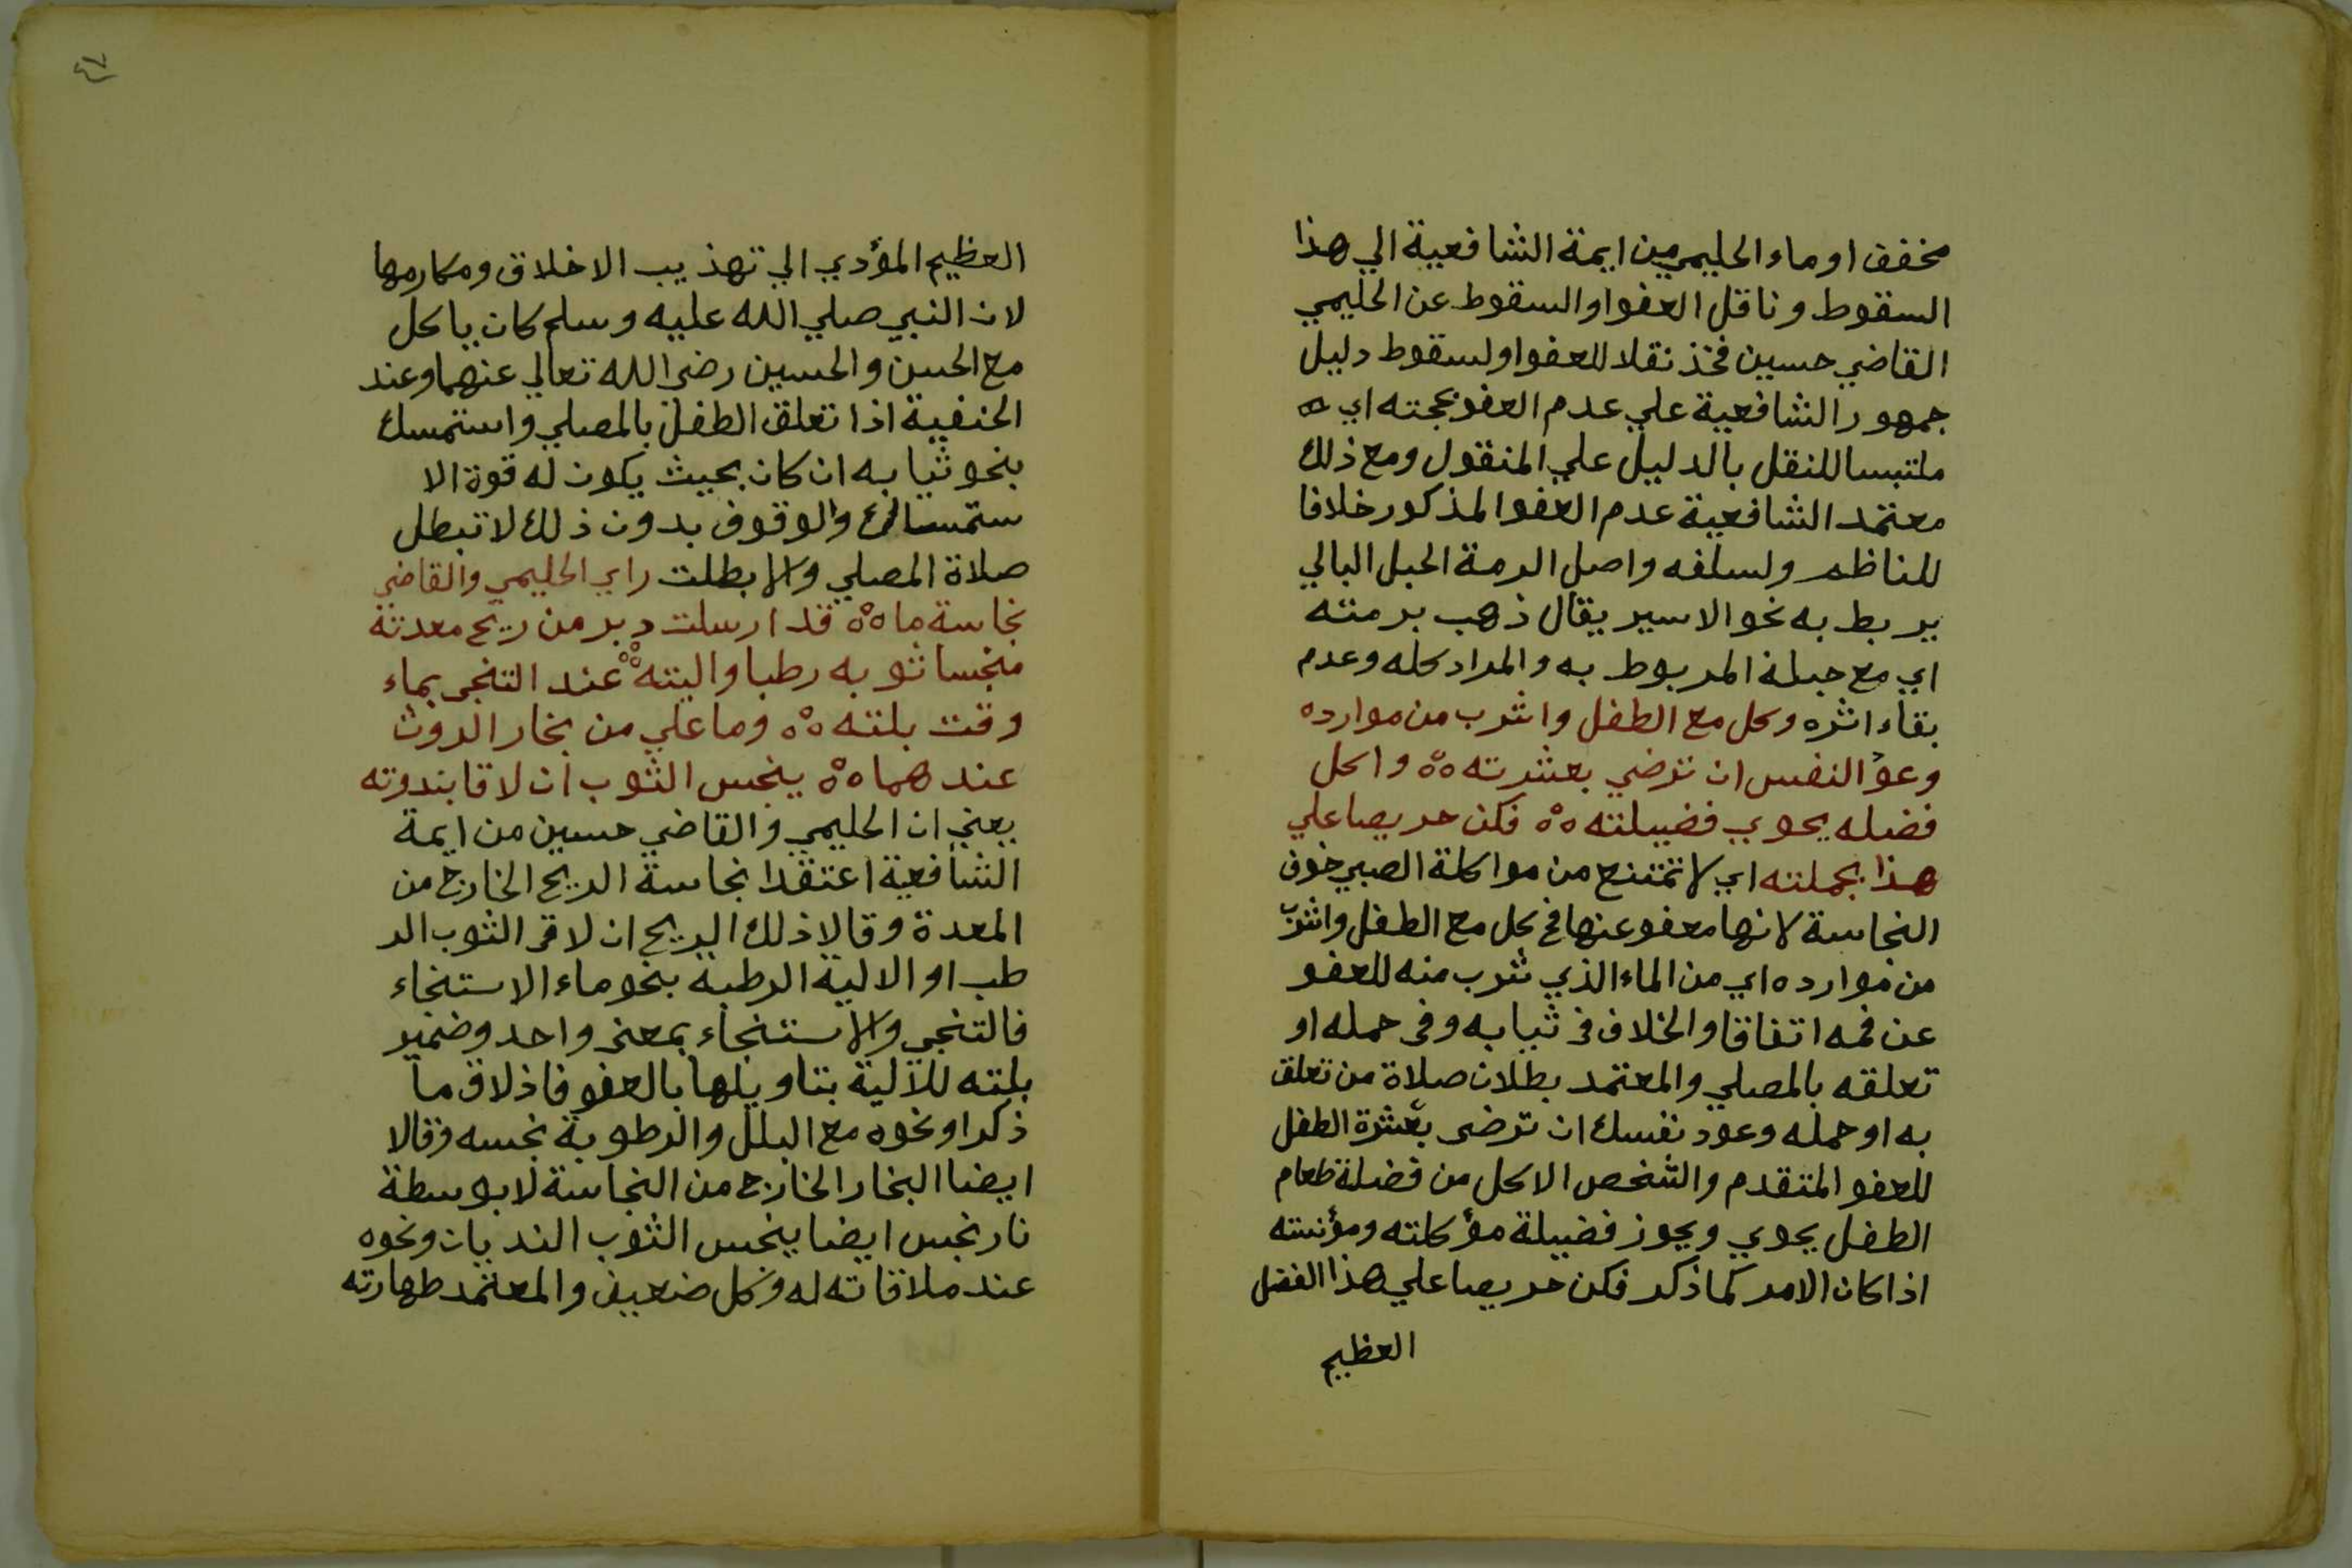 مخفف اوماء الحليمي من ايمة الشافعية الي هذا
السقوط وناقل العفو او السقوط عن الحليمي
القاضي حسين فخذ نقلا للعفو او لسقوط دليل
جمهور الشافعية علي عدم العفو بحجته اي
ملتبسا للنقل بالدليل علي المنقول ومع ذلك
معتمد الشافعية عدم العفو المذكور خلافا
للناظم ولسلفه واصل الرمة الحبل البالي
يربط به نحو الاسير يقال ذهب برمته
اي مع حبله المربوط به والمراد كله وعدم
بقاء اثره وكل مع الطفل واشرب من موارده
وعود النفس ان ترضي بعشرته ٥٥ واكل
فضله يحوي فضيلته ٥٥ فكن حريصا علي
هذا بجملته اي لا تمتنع من مواكلة الصبي خوف
النجاسة لانها معفو عنها فكل مع الطفل واشرب
من موارده اي من الماء الذي شرب منه للعفو
عن فمه اتفاقا والخلاف في ثيابه وفي حمله او
تعلقه بالمصلي والمعتمد بطلان صلاة من تعلق
به او حمله وعود نفسك ان ترضى بعشرة الطفل
للعفو المتقدم والشخص الاكل من فضلة طعام
الطفل يحوي ويحوز فضيلة مؤكلته ومؤنسته
اذا كان الامر كما ذكر فكن حريصا علي هذا الفضل
العظيم
٤٧
العظيم المؤدي الي تهذيب الاخلاق ومكارمها
لان النبي صلي الله عليه وسلم كان ياكل
مع الحسن والحسين رضي الله تعالي عنهما وعند
الحنفية اذا تعلق الطفل بالمصلي واستمسك
بنحو ثيابه ان كان بحيث يكون له قوة الا
ستمساك والوقوف بدون ذلك لا تبطل
صلاة المصلي والا بطلت راي الحليمي والقاضي
نجاسة ما ٥٥ قد ارسلت دبر من ريح معدته
منجسا ثوبه رطبا واليته ٥٥ عند التنجي بماء
وقت بلته ٥٥ وما علي من بخار الروث
عندهما ٥٥ ينجس الثوب ان لاقا بندوته
يعني ان الحليمي والقاضي حسين من ايمة
الشافعية اعتقدا نجاسة الريح الخارج من
المعدة وقالا ذلك الريح ان لاقى الثوب الر
طب او الالية الرطبة بنحو ماء الاستنجاء
فالتنجي والاستنجاء بمعنى واحد وضمير
بلته للالية بتاويلها بالعفو فاذ لاق ما
ذكر او نحوه مع البلل والرطوبة نجسه وقالا
ايضا البخار الخارج من النجاسة لا بوسطة
نار نجس ايضا ينجس الثوب النديان ونحوه
عند ملاقاته له وكل ضعيف والمعتمد طهارته